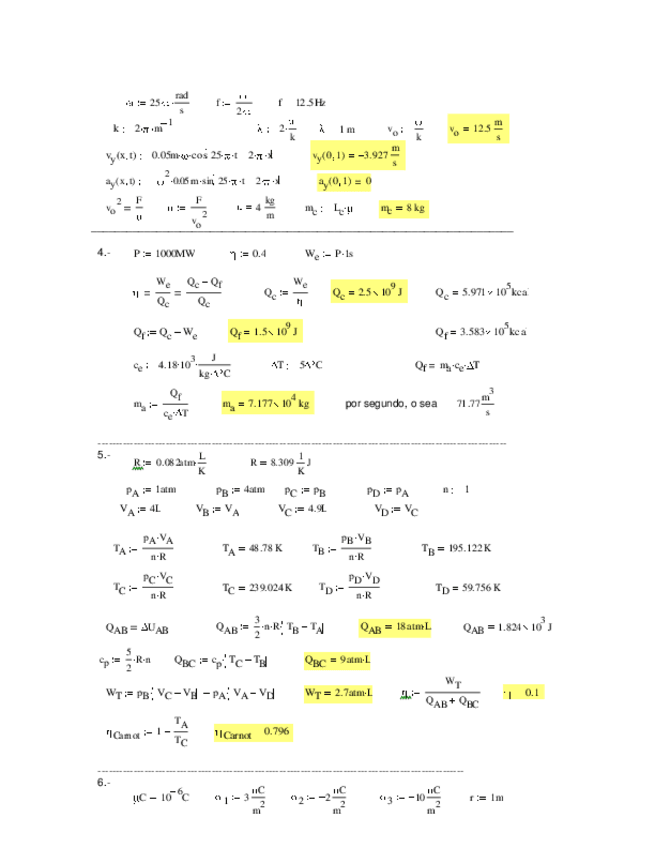 := 25 · rad/s f := 2 f 12.5Hz
k : 2·π·m⁻¹ λ : 2·/k λ 1 m v_o : /k v_o = 12.5 m/s
v_y(x,t) : 0.05m·ω·cos 25·π·t 2·π·x v_y(0,1) = −3.927 m/s
a_y(x,t) : ² ·0.05m·sin 25·π·t 2·π·x a_y(0,1) = 0
v_o² = F/μ := F/v_o² = 4 kg/m m_c : L_c·μ m_c = 8 kg
4.- P := 1000MW η := 0.4 W_e := P·1s
η = W_e/Q_c = (Q_c − Q_f)/Q_c Q_c := W_e/η Q_c = 2.5×10⁹ J Q_c = 5.971×10⁵ kcal
Q_f := Q_c − W_e Q_f = 1.5×10⁹ J Q_f = 3.583×10⁵ kca
c_e : 4.18·10³· J/(kg·Δ°C) ΔT : 5Δ°C Q_f = m_a·c_e·ΔT
m_a := Q_f/(c_e·ΔT) m_a = 7.177×10⁴ kg por segundo, o sea 71.77 m³/s
5.- R := 0.082atm· L/K R = 8.309 1/K J
p_A := 1atm p_B := 4atm p_C := p_B p_D := p_A n : 1
V_A := 4L V_B := V_A V_C := 4.9L V_D := V_C
T_A := p_A·V_A/(n·R) T_A = 48.78 K T_B := p_B·V_B/(n·R) T_B = 195.122 K
T_C := p_C·V_C/(n·R) T_C = 239.024 K T_D := p_D·V_D/(n·R) T_D = 59.756 K
Q_AB = ΔU_AB Q_AB := 3/2 ·n·R·(T_B − T_A) Q_AB = 18 atm·L Q_AB = 1.824×10³ J
c_p := 5/2 ·R·n Q_BC := c_p·(T_C − T_B) Q_BC = 9 atm·L
W_T := p_B·(V_C − V_B) − p_A·(V_A − V_D) W_T = 2.7 atm·L η := W_T/(Q_AB + Q_BC) η 0.1
η_Carnot := 1 − T_A/T_C η_Carnot 0.796
6.- μC := 10⁻⁶C σ₁ := 3 μC/m² σ₂ := −2 μC/m² σ₃ := −10 μC/m² r := 1m